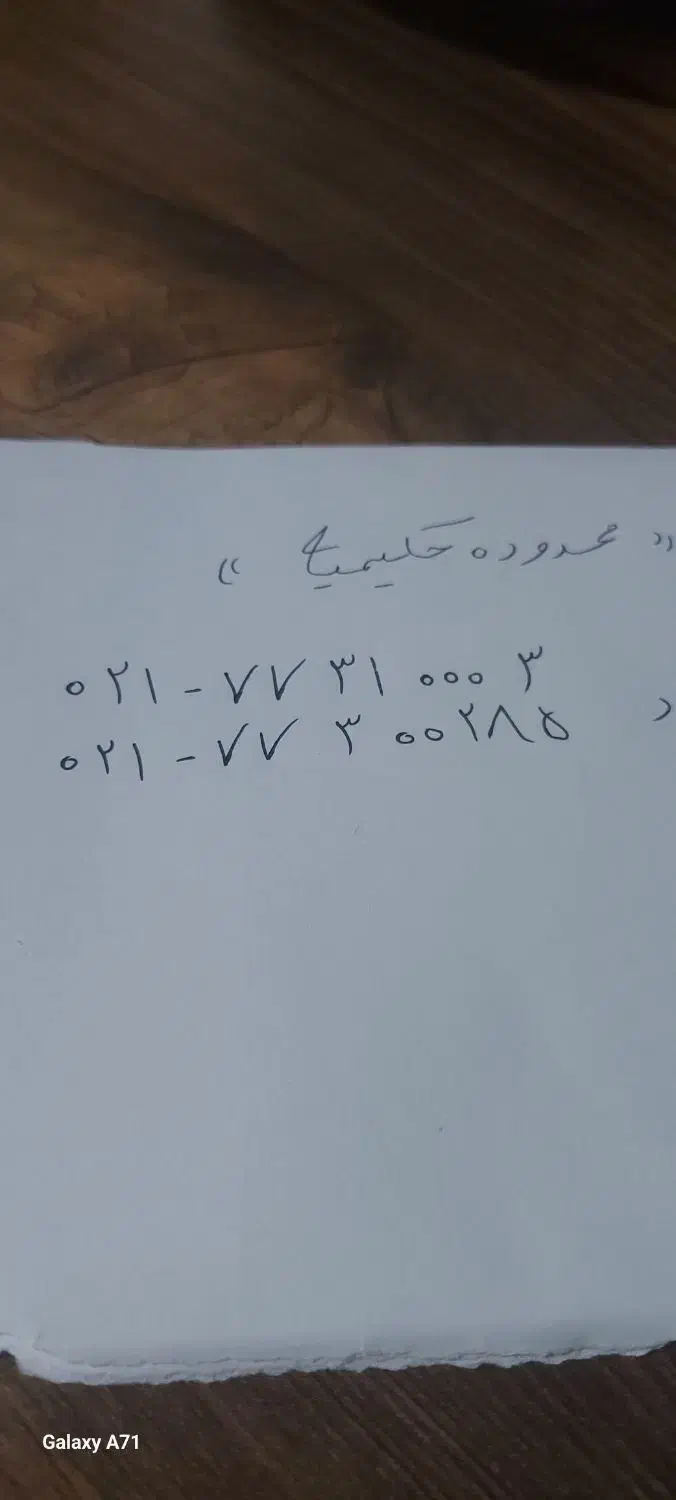 « محدوده حکیمیه »
۰۲۱-۷۷۳۱۰۰۰۳
۰۲۱-۷۷۳۰۰۲۸۵
Galaxy A71